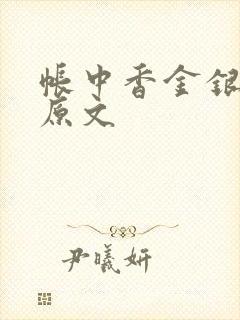 帐中香金银
原文
尹曦妍